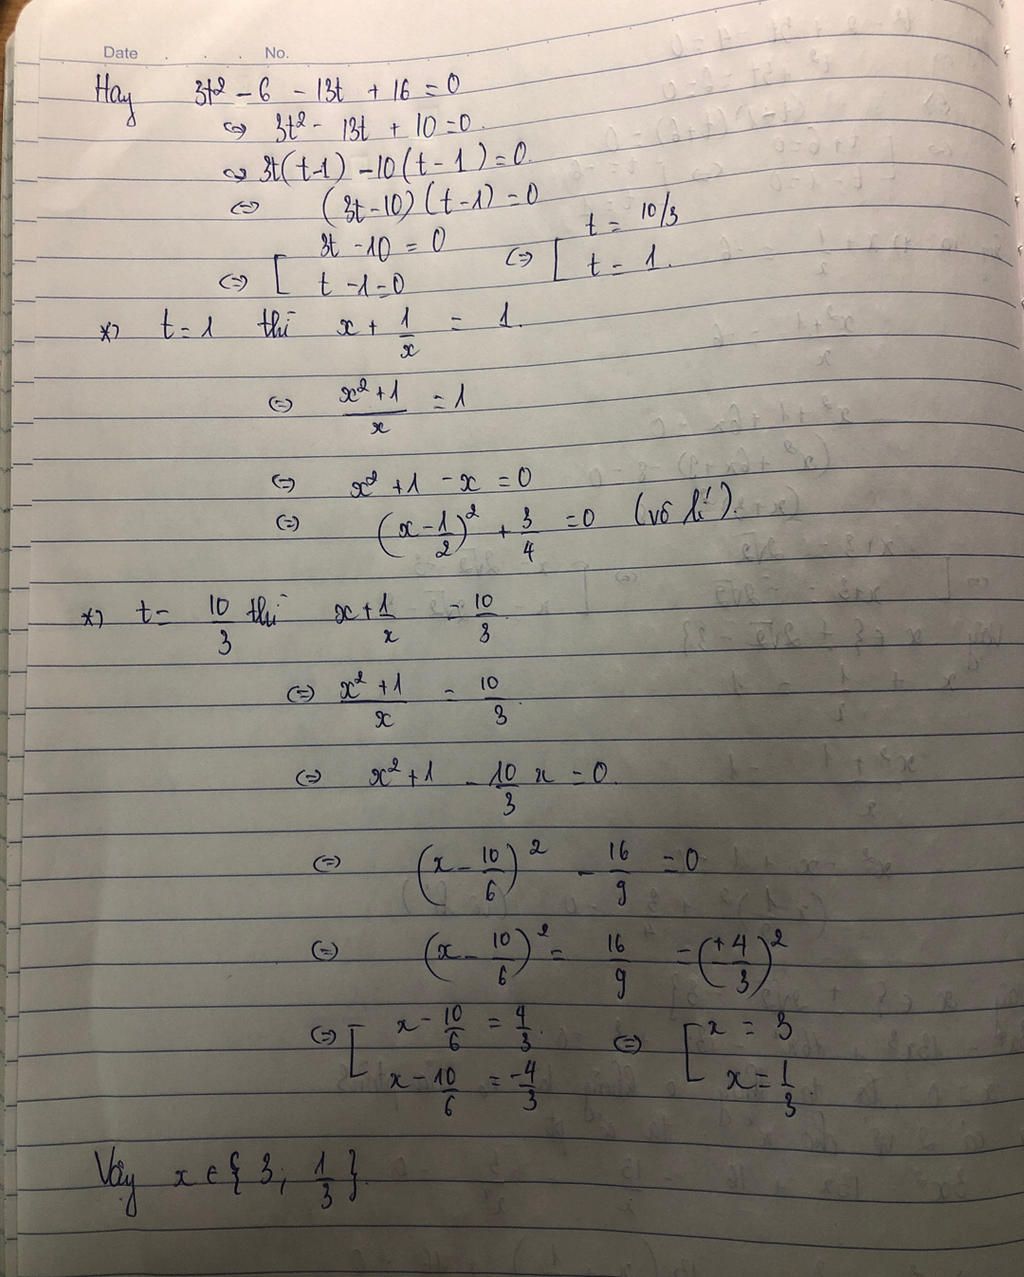 Date . . . No.
Hay 3t² - 6 - 13t + 16 = 0
⇔ 3t² - 13t + 10 = 0.
⇔ 3t(t-1) - 10(t-1) = 0.
⇔ (3t-10)(t-1) = 0
⇔ [ 3t - 10 = 0 ; t - 1 = 0 ⇔ [ t = 10/3 ; t = 1.
*) t = 1 thì x + 1/x = 1.
⇔ (x² + 1)/x = 1
⇔ x² + 1 - x = 0
⇔ (x - 1/2)² + 3/4 = 0 (vô lí).
*) t = 10/3 thì x + 1/x = 10/3
⇔ (x² + 1)/x = 10/3
⇔ x² + 1 - 10/3 x = 0.
⇔ (x - 10/6)² - 16/9 = 0
⇔ (x - 10/6)² = 16/9 = (±4/3)²
⇔ [ x - 10/6 = 4/3. ; x - 10/6 = -4/3 ⇔ [ x = 3 ; x = 1/3
Vậy x ∈ { 3; 1/3 }.